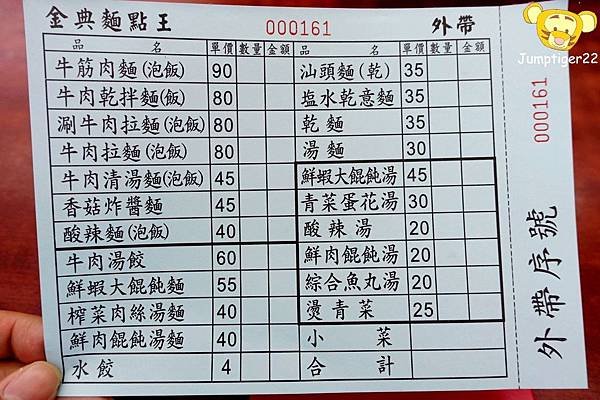 金典麵點王 000161 外帶
品名 單價 數量 金額 品名 單價 數量 金額
牛筋肉麵(泡飯) 90 汕頭麵(乾) 35
牛肉乾拌麵(飯) 80 塩水乾意麵 35
涮牛肉拉麵(泡飯) 80 乾麵 35
牛肉拉麵(泡飯) 80 湯麵 30
牛肉清湯麵(泡飯) 45 鮮蝦大餛飩湯 45
香菇炸醬麵 45 青菜蛋花湯 30
酸辣麵(泡飯) 40 酸辣湯 20
牛肉湯餃 60 鮮肉餛飩湯 20
鮮蝦大餛飩麵 55 綜合魚丸湯 20
榨菜肉絲湯麵 40 燙青菜 25
鮮肉餛飩湯麵 40 小菜
水餃 4 合計
000161
外帶序號
Jumptiger22